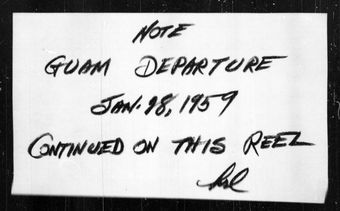 NOTE
GUAM DEPARTURE
JAN. 28, 1959
CONTINUED ON THIS REEL